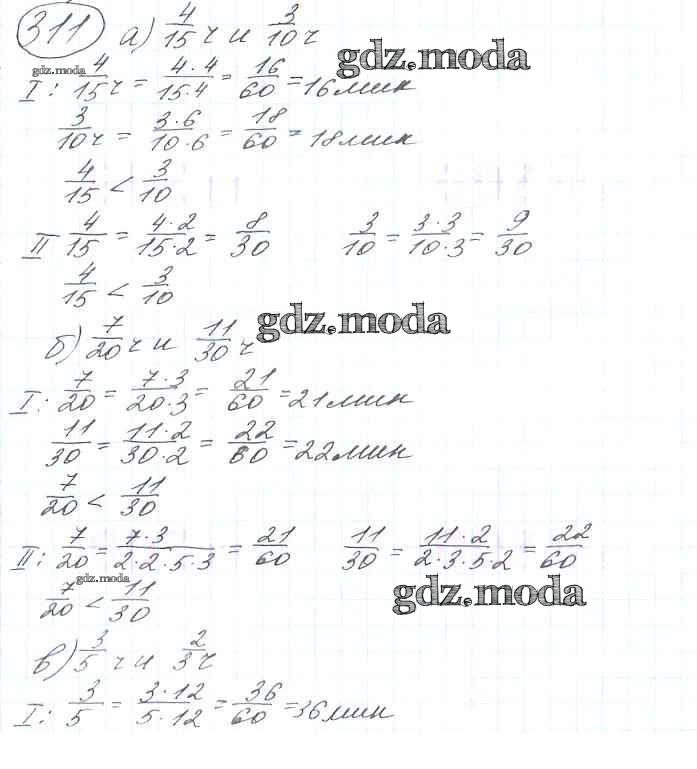 311 а) 4/15 ч и 3/10 ч
gdz.moda
gdz.moda
I: 4/15 ч = 4·4/15·4 = 16/60 = 16 мин
3/10 ч = 3·6/10·6 = 18/60 = 18 мин
4/15 < 3/10
II 4/15 = 4·2/15·2 = 8/30 3/10 = 3·3/10·3 = 9/30
4/15 < 3/10
gdz.moda
б) 7/20 ч и 11/30 ч
I: 7/20 = 7·3/20·3 = 21/60 = 21 мин
11/30 = 11·2/30·2 = 22/60 = 22 мин
7/20 < 11/30
II: 7/20 = 7·3/2·2·5·3 = 21/60 11/30 = 11·2/2·3·5·2 = 22/60
gdz.moda
7/20 < 11/30
gdz.moda
в) 3/5 ч и 2/3 ч
I: 3/5 = 3·12/5·12 = 36/60 = 36 мин